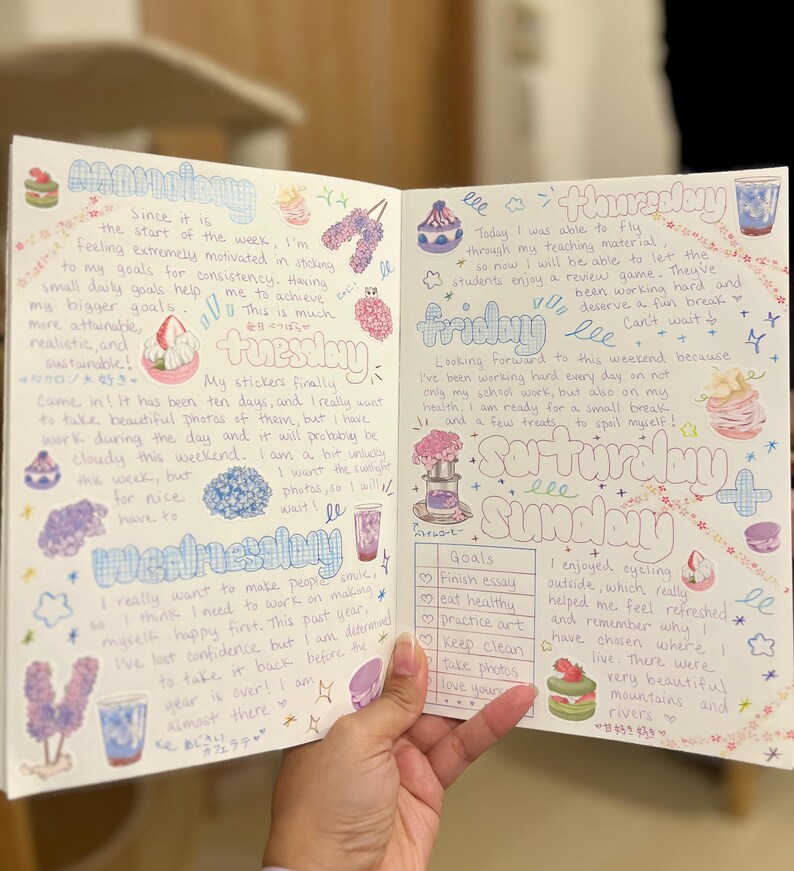 monday
Since it is
the start of the week, I'm
feeling extremely motivated in sticking
to my goals for consistency. Having
small daily goals help me to achieve
my bigger goals. This is much
more attainable,
realistic, and
sustainable!
マカロン大好き
tuesday
My stickers finally
came in! It has been ten days, and I really want
to take beautiful photos of them, but I have
work during the day and it will probably be
cloudy this weekend. I am a bit unlucky
this week, but I want the sunlight
for nice photos, so I will
have to wait!
wednesday
I really want to make people smile,
so I think I need to work on making
myself happy first. This past year,
I've lost confidence but I am determined
to take it back before the
year is over! I am
almost there ♡
あじさい
カフェラテ
thursday
Today I was able to fly
through my teaching material,
so now I will be able to let the
students enjoy a review game. They've
been working hard and
deserve a fun break ♡
Can't wait!
friday
Looking forward to this weekend because
I've been working hard every day on not
only my school work, but also on my
health. I am ready for a small break
and a few treats to spoil myself!
saturday
+
sunday
ベトナムコーヒー
Goals
finish essay
eat healthy
practice art
keep clean
take photos
I enjoyed cycling
outside, which really
helped me feel refreshed
and remember why I
have chosen where I
live. There were
very beautiful
mountains and
rivers ♡
♡甘 好き 好き♡